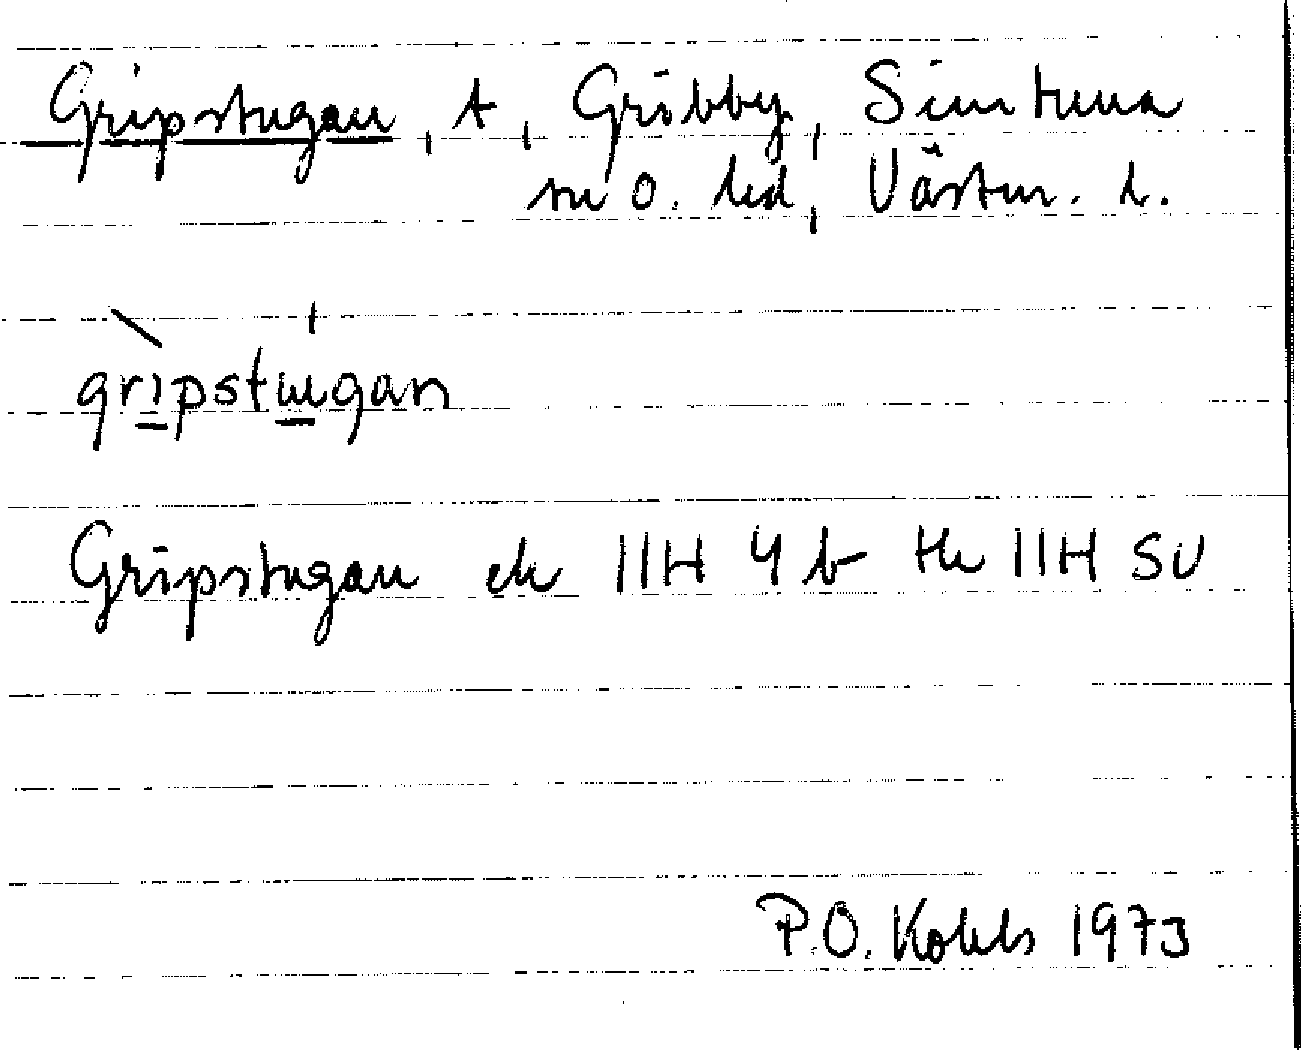 Gripstugan, t, Gröbby, Simtuna
sn o. hd, Västm. l.
gripstugan
Gripstugan ek 11H 4 b th 11H SV
P.O. Kohls 1973